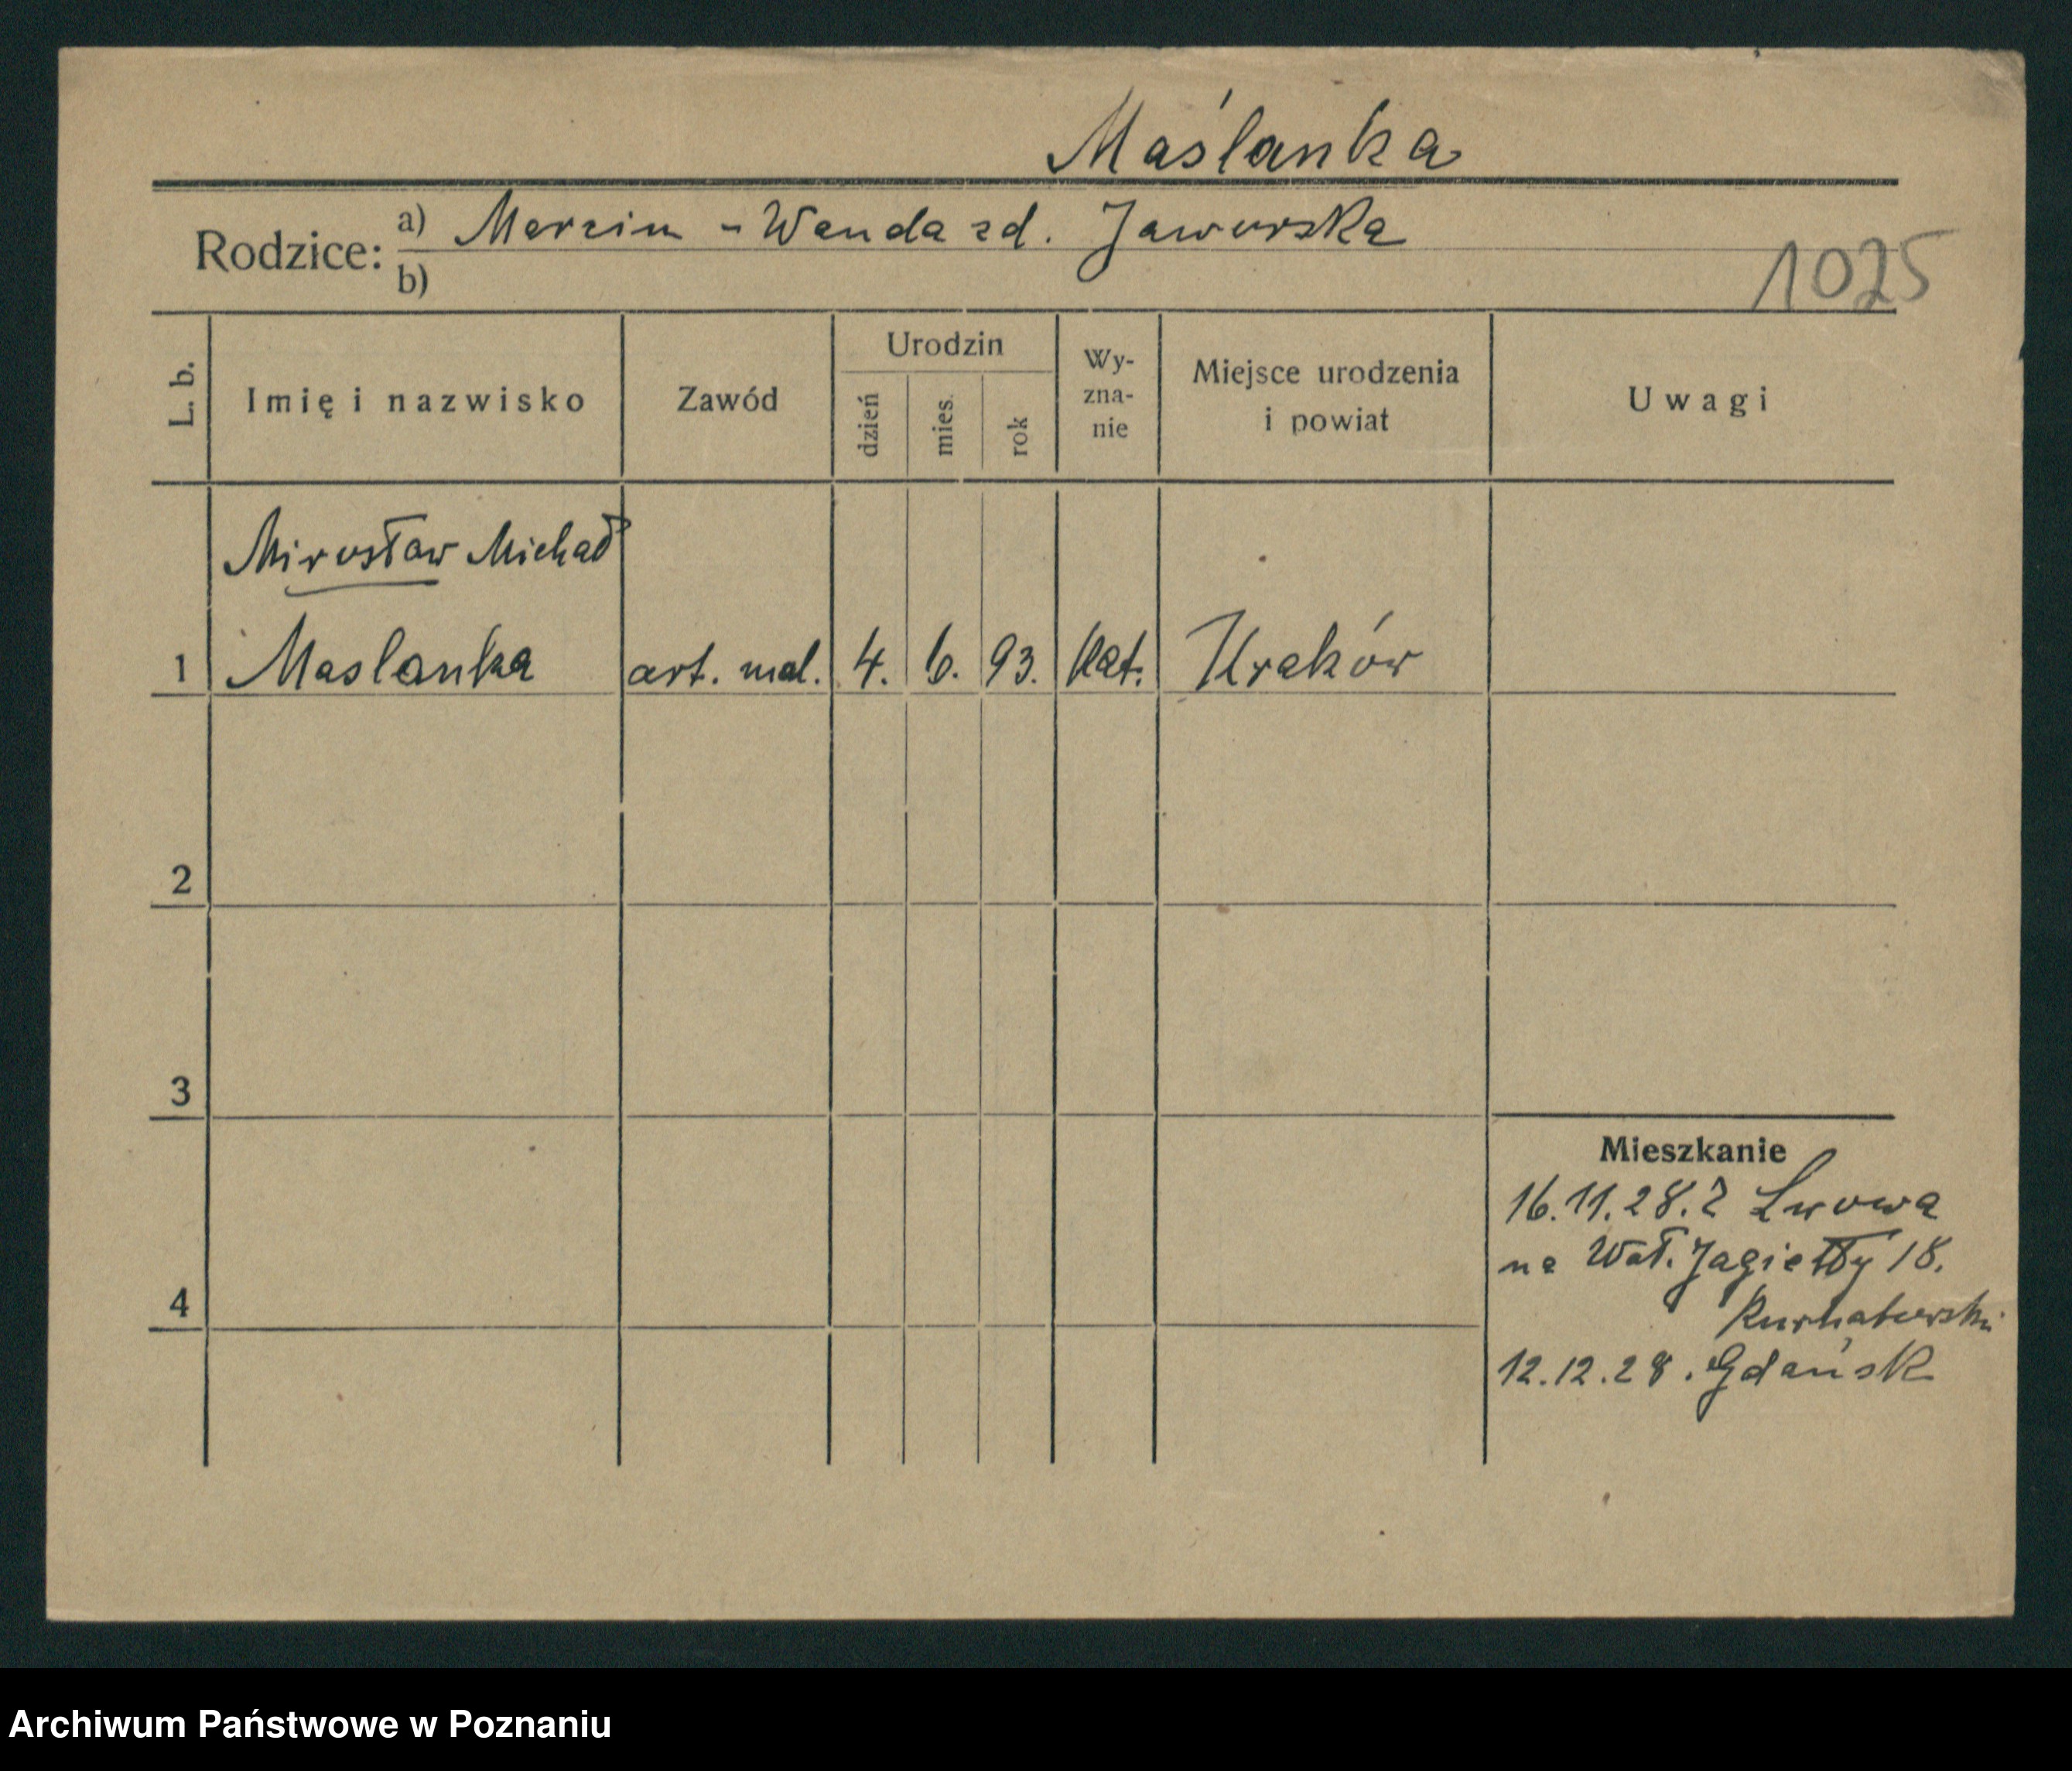 Maślanka
Rodzice: a) Marcin - Wanda zd. Jaworska
b)
1025
L. b. Imię i nazwisko Zawód Urodzin dzień mies. rok Wy-zna-nie Miejsce urodzenia i powiat Uwagi
Mirosław Michał
1 Maslanka art. mal. 4. 6. 93. kat. Kraków
2
3
Mieszkanie
16.11.28. z Lwowa
na Wał. Jagiełły 18.
4
12.12.28. Gdańsk
Archiwum Państwowe w Poznaniu